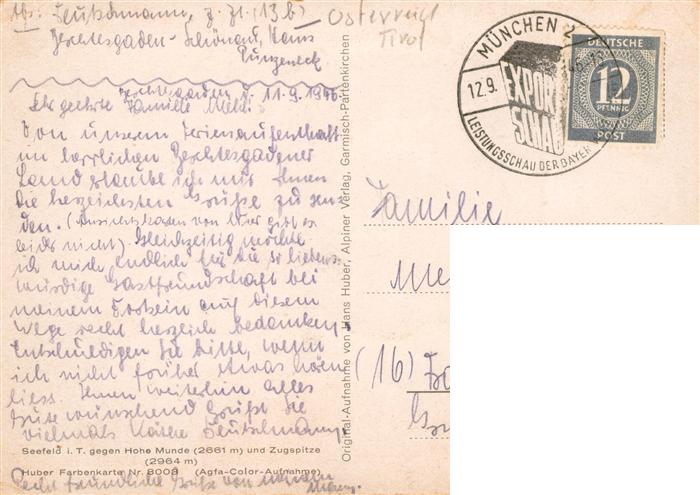 Abs: Deutschmann, z. Zt. (13b)
Österreich
Tirol
Berchtesgaden - Schönau, Haus
Punzeneck
Berchtesgaden d. 11.9.1946
Sehr geehrte Familie
Von unserem Ferienaufenthalt
im herrlichen Berchtesgadener
Land erlaube ich mir Ihnen
die herzlichsten Grüße zu sen-
den. (Ansichtskarten von hier gibt es
leider nicht). Gleichzeitig möchte
ich mich endlich für die so liebens-
würdige Gastfreundschaft bei
meinem Dortsein auf diesem
Wege recht herzlich bedanken.
Entschuldigen Sie bitte, wenn
ich nicht früher etwas hören
liess. Ihnen weiterhin alles
Gute wünschend grüßt Sie
vielmals Käthe Deutschmann
Seefeld i. T. gegen Hohe Munde (2661 m) und Zugspitze
(2964 m)
Huber Farbenkarte Nr. 8009 (Agfa-Color-Aufnahme)
Recht freundliche Grüße von
Original-Aufnahme von Hans Huber, Alpiner Verlag, Garmisch-Partenkirchen
MÜNCHEN 2
12.9.
EXPORT
SCHAU
LEISTUNGSSCHAU DER BAYER
DEUTSCHE
12
PFENNIG
POST
Familie
Me
(16)